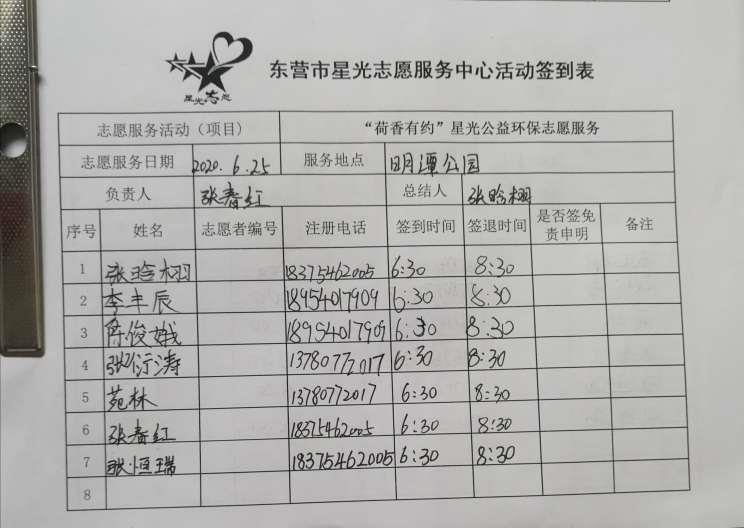 星光志愿
东营市星光志愿服务中心活动签到表
志愿服务活动（项目） “荷香有约”星光公益环保志愿服务
志愿服务日期 2020.6.25 服务地点 明潭公园
负责人 张春红 总结人 张晗栩
序号 姓名 志愿者编号 注册电话 签到时间 签退时间 是否签免责申明 备注
1 张晗栩 18375462005 6:30 8:30
2 李丰辰 18954017909 6:30 8:30
3 陈俊娥 18954017909 6:30 8:30
4 张衍涛 13780772017 6:30 8:30
5 苑林 13780772017 6:30 8:30
6 张春红 18375462005 6:30 8:30
7 张恒瑞 18375462005 6:30 8:30
8